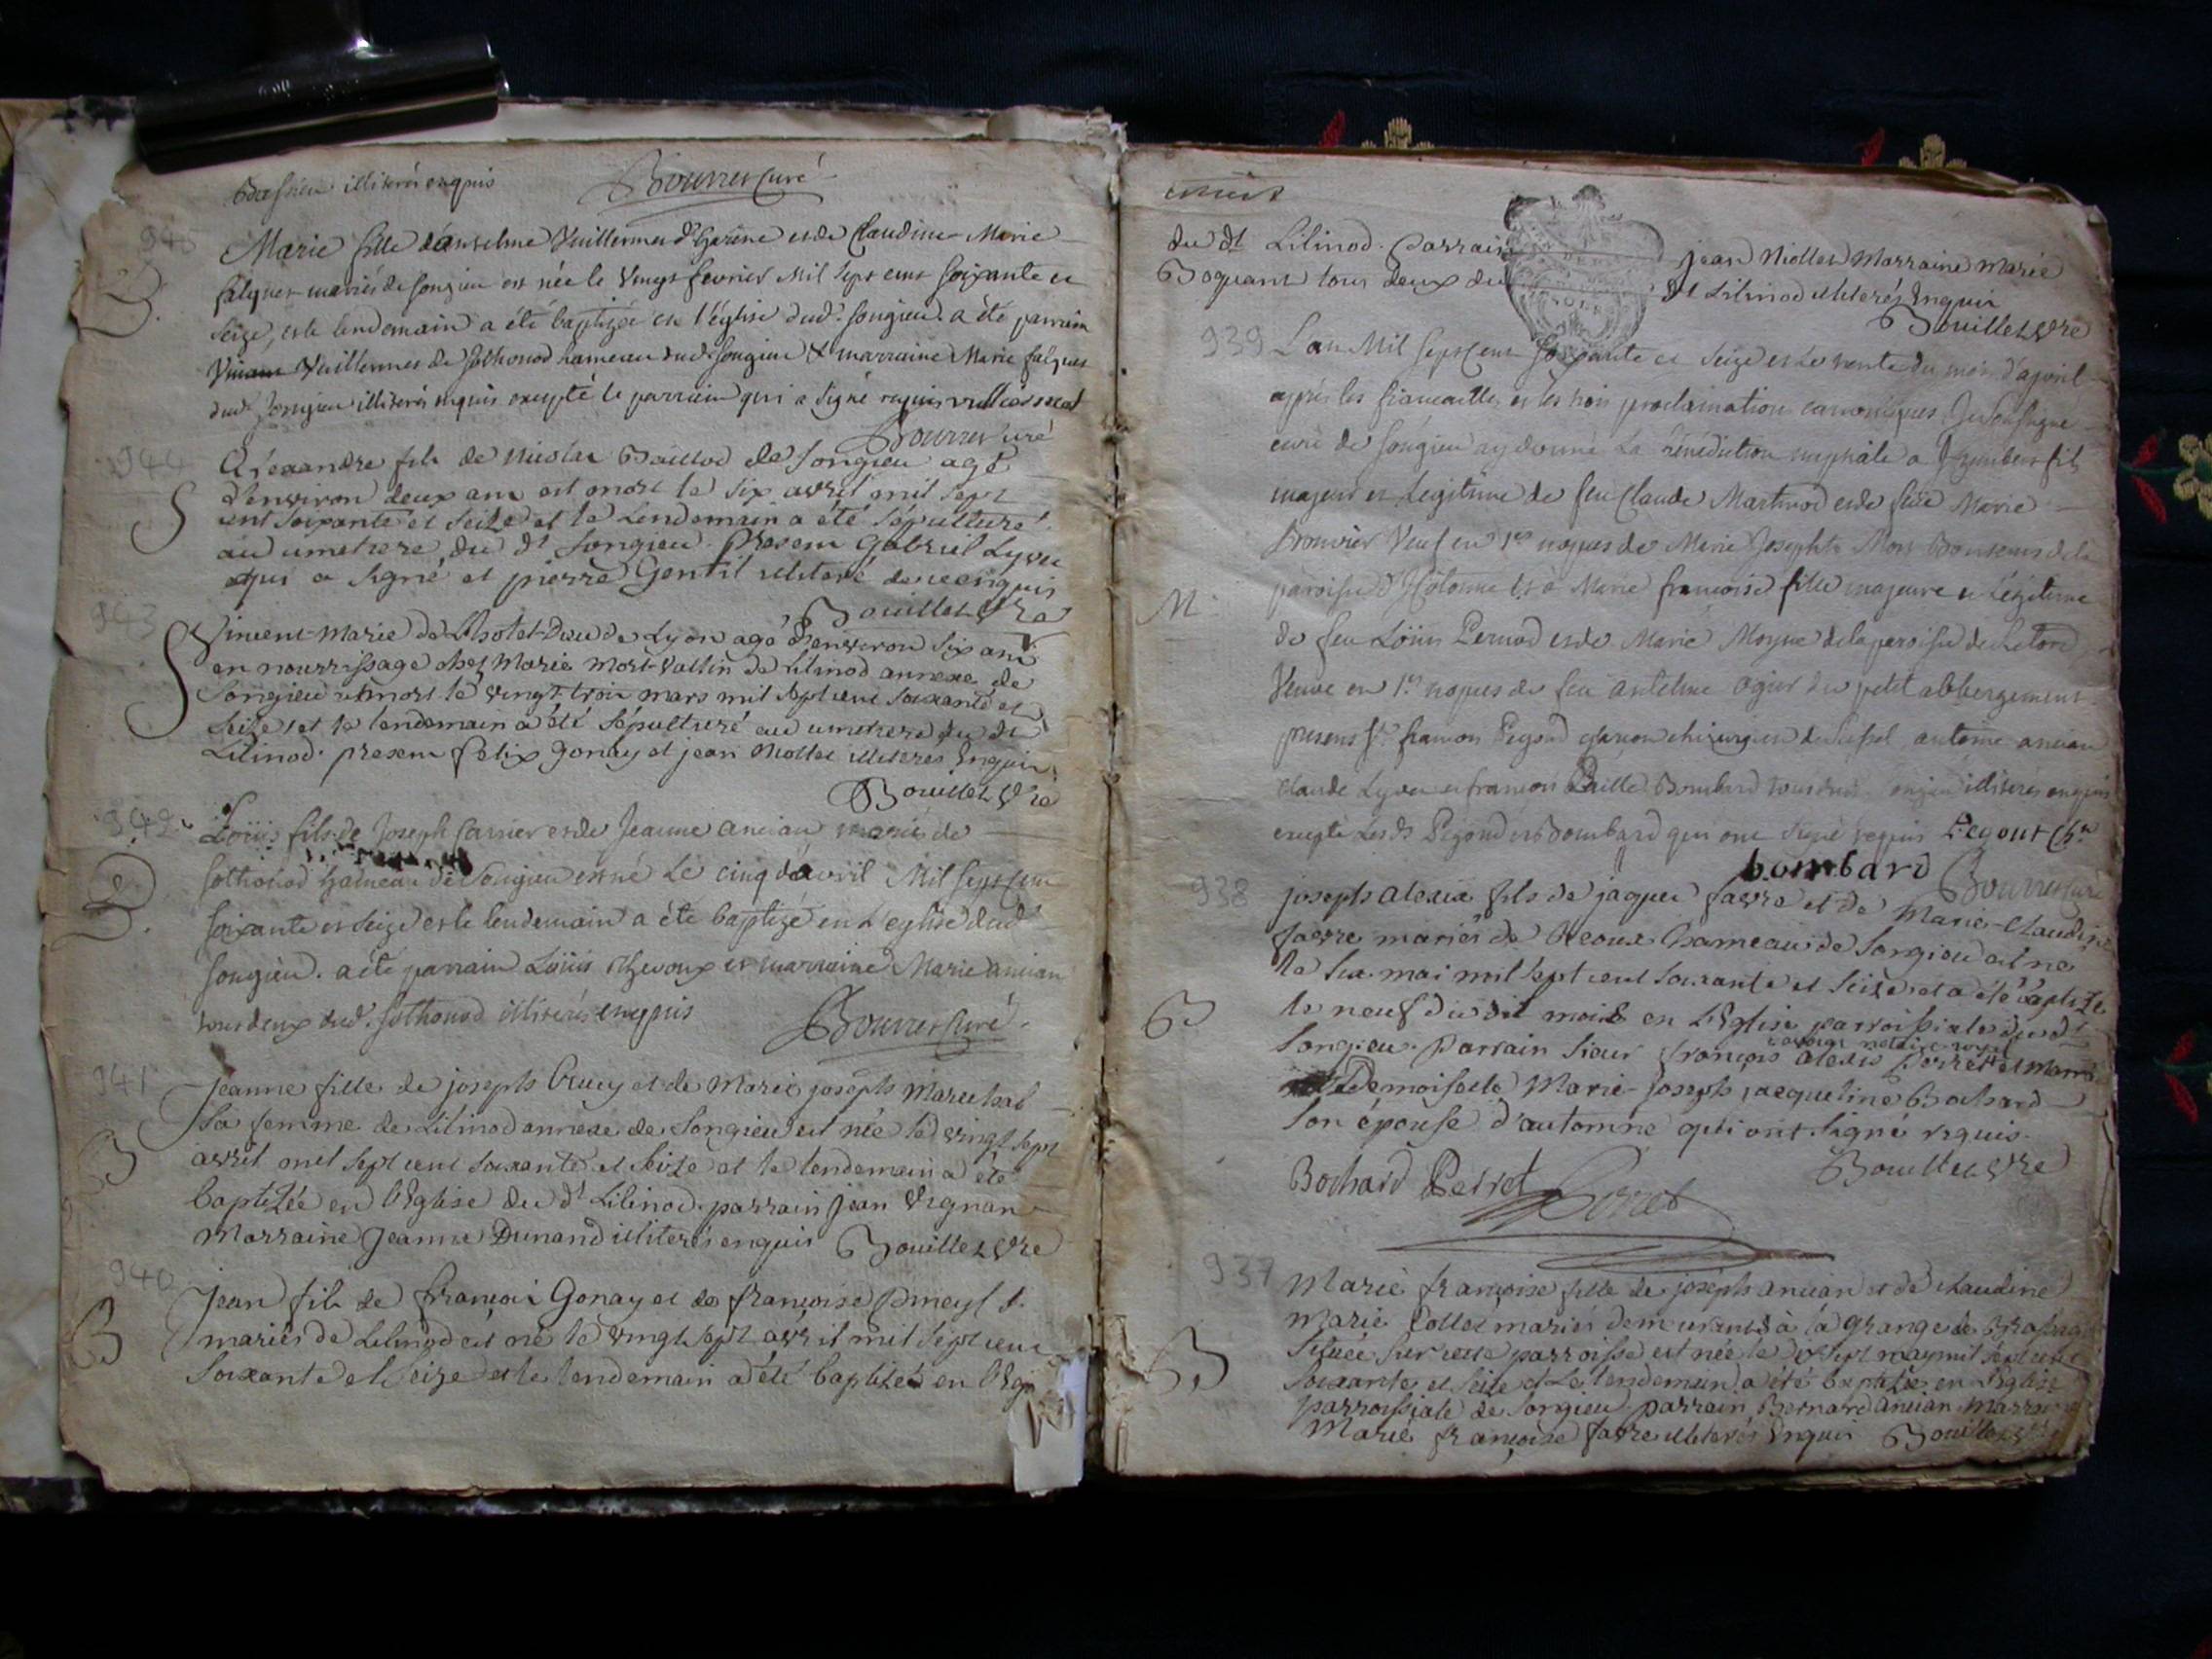 illiterés enquis Bouvier curé
945
Marie fille d'anselme Vuillermes d'harene et de Claudine Marie
falques mariés de songieu est née le vingt fevrier Mil sept cent soixante et
seize, et le lendemain a été baptizée en l'église dud. songieu. a été parrain
Vuillermes de sothonod hameau dud. songieu & marraine Marie falques
dud. songieu illiterés enquis excepté le parrain qui a signé requis
Bouvier curé
944
S
Alexandre fils de nicolas Baillod de songieu agé
d'environ deux ans est mort le six avril mil sept
cent soixante et seize et le lendemain a été sépulturé
au cimetiere du dt songieu. presens Gabriel Lyvet
qui a signé et pierre Gentil illiteré de ce enquis
Bouillet vre
943
S
Vincent-Marie de l'hotel-Dieu de Lyon agé d'environ six ans
en nourrissage chez Marie Mort-vallin de Lilinod annexe de
Songieu est mort le vingt trois mars mil sept cent soixante et
seize et le lendemain a été sépulturé au cimetiere du dt
Lilinod. presens felix gonay et jean Mollet illiterés enquis
Bouillet vre
942
B.
Loüis fils de Joseph Carrier et de Jeanne ancian mariés de
sothonod hameau de Songieu est né Le cinq d'avril Mil sept cent
soixante et seize et le lendemain a été baptizé en L'eglise dud.
songieu. a été parrain Loüis Thevoux et marraine Marie ancian
tous deux dud. sothonod illiterés enquis Bouvier curé.
941
B
Jeanne fille de joseph Cruey et de Marie joseph Marechal
sa femme de Lilinod annexe de Songieu est née le vingt sept
avril mil sept cent soixante et seize et le lendemain a été
baptizée en l'Eglise du dt Lilinod. parrain jean Vignan
Marraine Jeanne Dunand illiterés enquis Bouillet vre
940
B
Jean fils de françois Gonay et de françoise
mariés de Lilinod est né le vingt sept avril mil sept cent
soixante et seize et le lendemain a été baptizé en l'Eg
du dt Lilinod. Parrain jean Mollet Marraine Marie
Boquant tous deux du dt Lilinod illiterés enquis
Bouillet vre
939
M.
L'an Mil sept cent soixante et seize et Le trente du mois d'apvril
après les fiancailles et les trois proclamations canoniques Je soussigné
curé de songieu ay donné La bénédiction nuptiale a Humbert fils
majeur et Legitime de feu Claude Martinod et de feüe Marie
Brouvier Veuf en 1res nopces de Marie Josephte de la
paroisse d'Hotonne et à Marie francoise fille majeure et Légitime
de feu Loüis Pernod et de Marie Moyne de la paroisse de
Veuve en 1res nopces de feu anthelme ogier du petit abbergement
presens Sr francois Pegoud garçon chirurgien de Seissel, antoine ancian
claude Lyvet et francois Baille Bombard tous dud. songieu illiterés enquis
excepté Lesds Pegoud et Bombard qui ont signé requis Pegout Chn
bombard Bouvier curé
938
B
joseph alexis fils de jaques favre et de Marie-Claudine
favre mariés de hameau de songieu est né
le six mai mil sept cent soixante et seize et a été baptizé
le neuf du dit mois en l'Eglise parroissiale du dt
songieu. Parrain sieur françois alexis Perret notaire royal et marr
Demoiselle Marie-joseph jacqueline Bochard
son épouse d'automne qui ont signé requis.
Bouillet vre
Bochard Perret Perret
937
B
Marie françoise fille de joseph ancian et de claudine
Marie Collet mariés demeurants à la grange de
située sur cette parroisse est née le dix sept may mil sept cent
soixante et seize et Le lendemain a été baptizée en l'Eglise
parroissiale de songieu. parrain Bernard ancian Marraine
Marie françoise favre illiterés enquis Bouillet vre